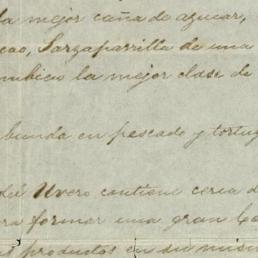 la mejor caña de azucar,
cao, Sarzaparrilla de una
la mejor clase de
bunda en pescado y tortug
del Uvero contiene cerca d
ra formar una gran
productos en su mism